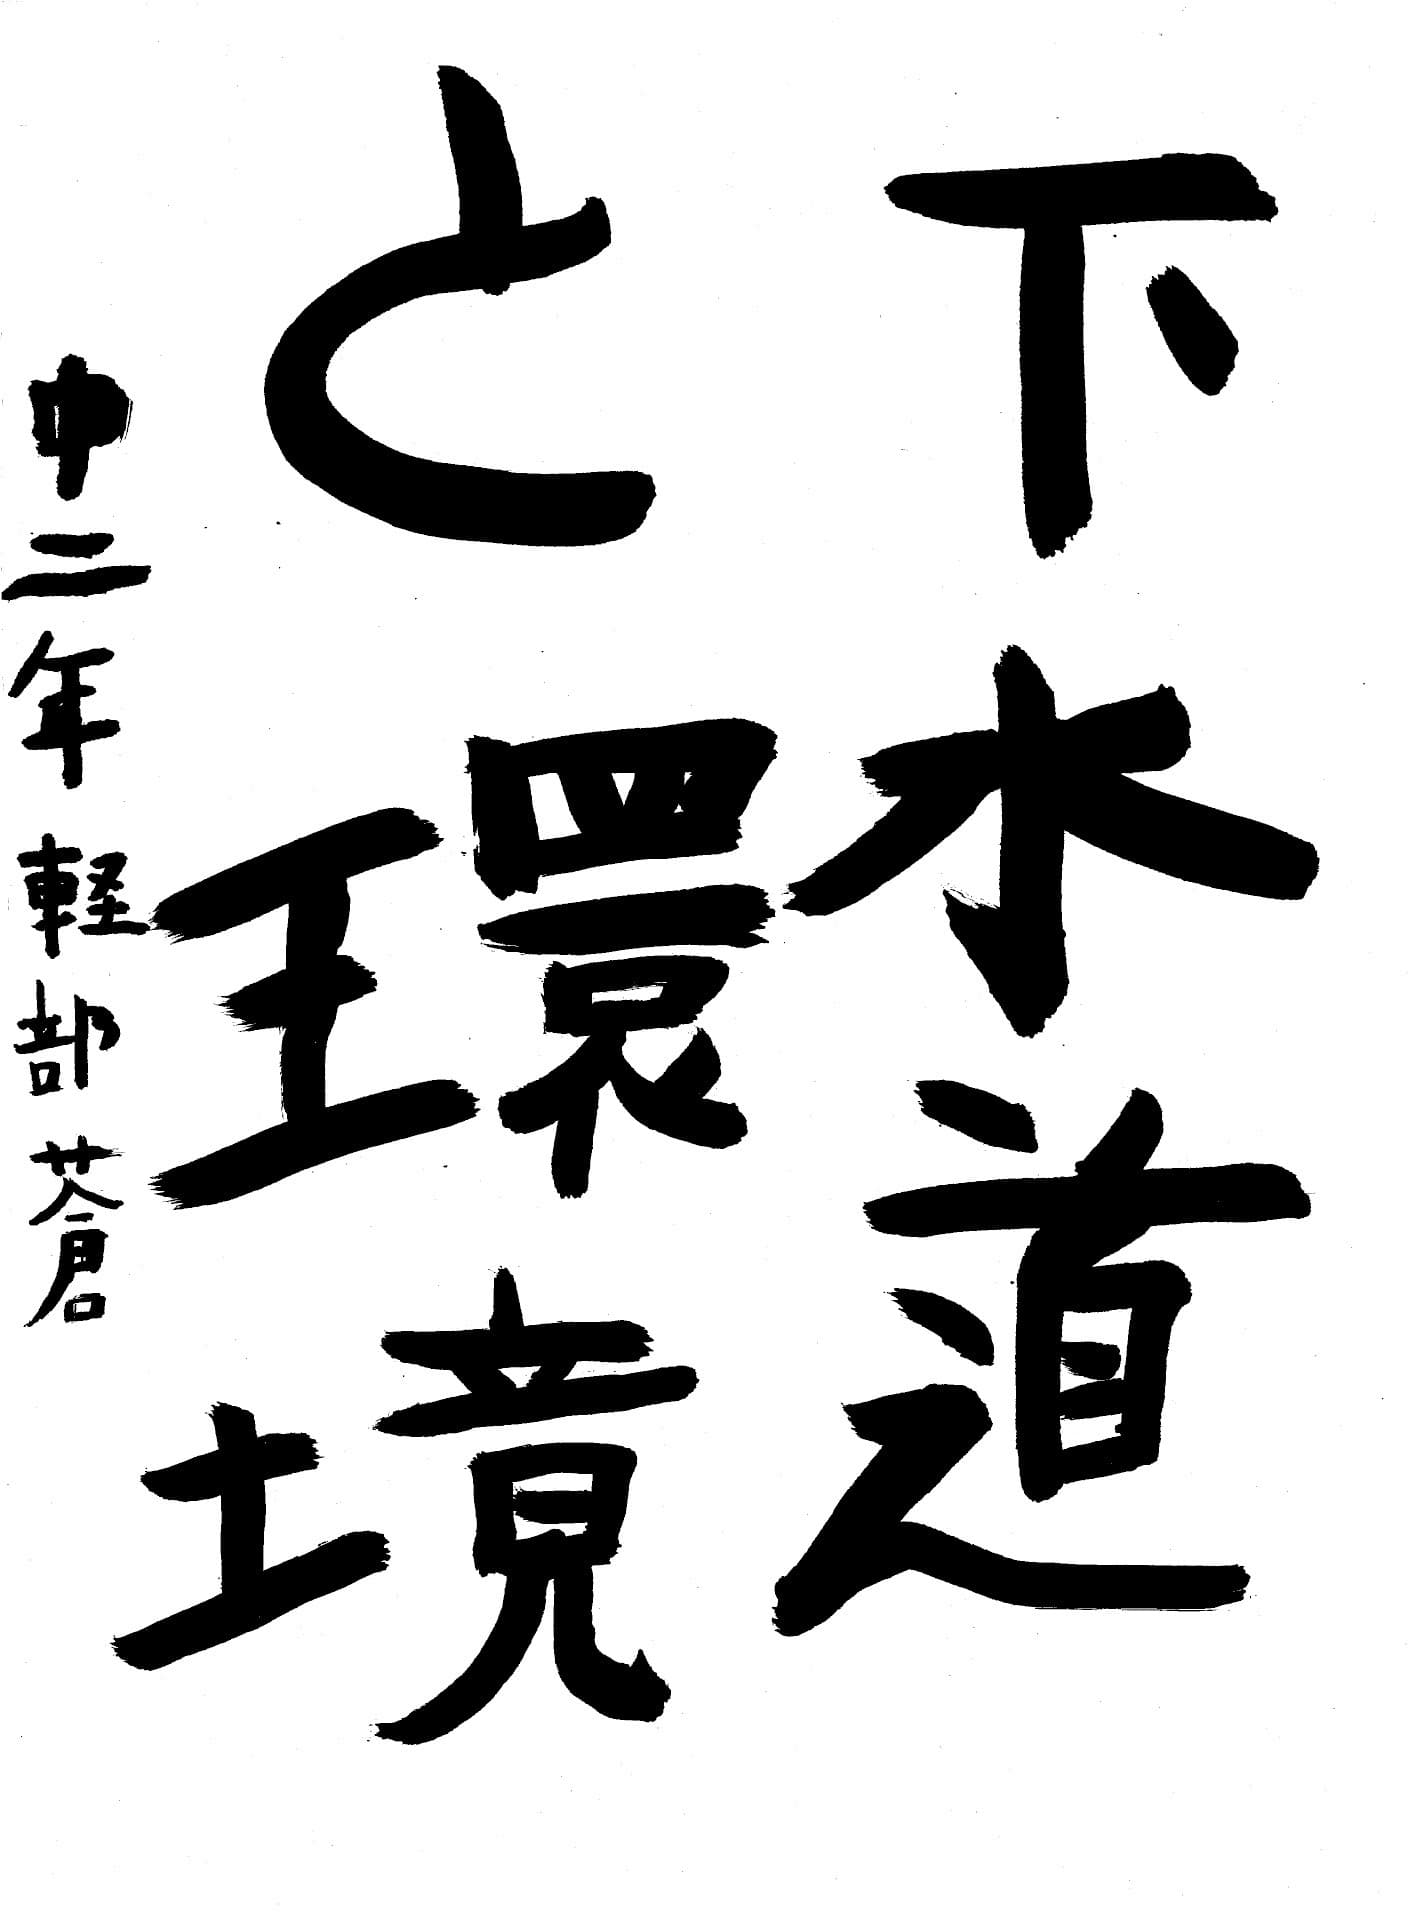 下水道
と環境
中二年 軽部蒼